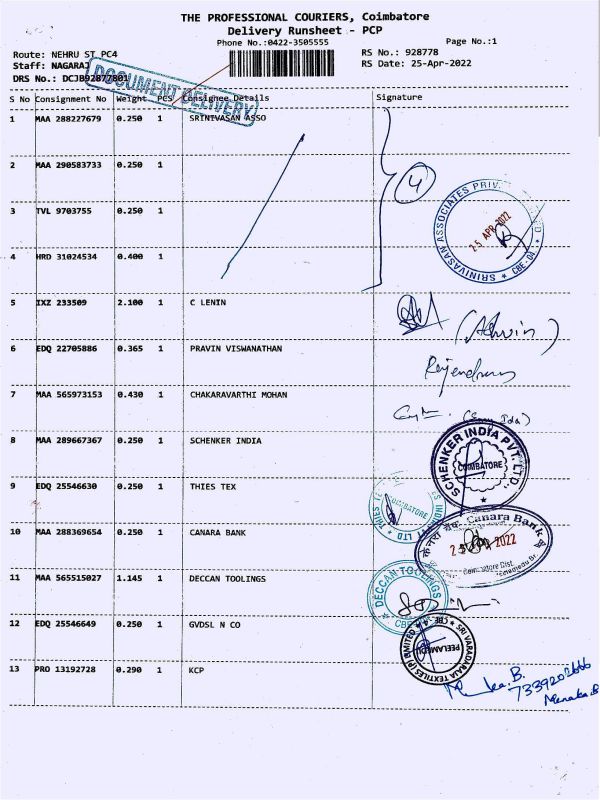 THE PROFESSIONAL COURIERS, Coimbatore
Delivery Runsheet - PCP
Phone No.:0422-3505555
Page No.:1
Route: NEHRU ST PC4
RS No.: 928778
Staff: NAGARAJ
RS Date: 25-Apr-2022
DRS No.: DCJB92877801
DOCUMENT DELIVERY
S No Consignment No Weight PCS Consignee Details Signature
1 MAA 288227679 0.250 1 SRINIVASAN ASSO
2 MAA 290583733 0.250 1
4
3 TVL 9703755 0.250 1
SRINIVASAN ASSOCIATES PRIV ED * CBE-04 *
25 APR 2022
4 HRD 31024534 0.400 1
5 IXZ 233509 2.100 1 C LENIN
(Ashwin)
6 EDQ 22705886 0.365 1 PRAVIN VISWANATHAN
Rajendran
7 MAA 565973153 0.430 1 CHAKARAVARTHI MOHAN
8 MAA 289667367 0.250 1 SCHENKER INDIA
SCHENKER INDIA PVT. LTD.,
COIMBATORE
9 EDQ 25546630 0.250 1 THIES TEX
THIES LTD
COIMBATORE
10 MAA 288369654 0.250 1 CANARA BANK
Canara Bank
2022
11 MAA 565515027 1.145 1 DECCAN TOOLINGS
DECCAN TOOLINGS
CBE
12 EDQ 25546649 0.250 1 GVDSL N CO
SRI VARADARAJA TEXTILES (P) LIMITED * CBE-4 *
PEELAMEDU
13 PRO 13192728 0.290 1 KCP
7339202666
Menaka.B